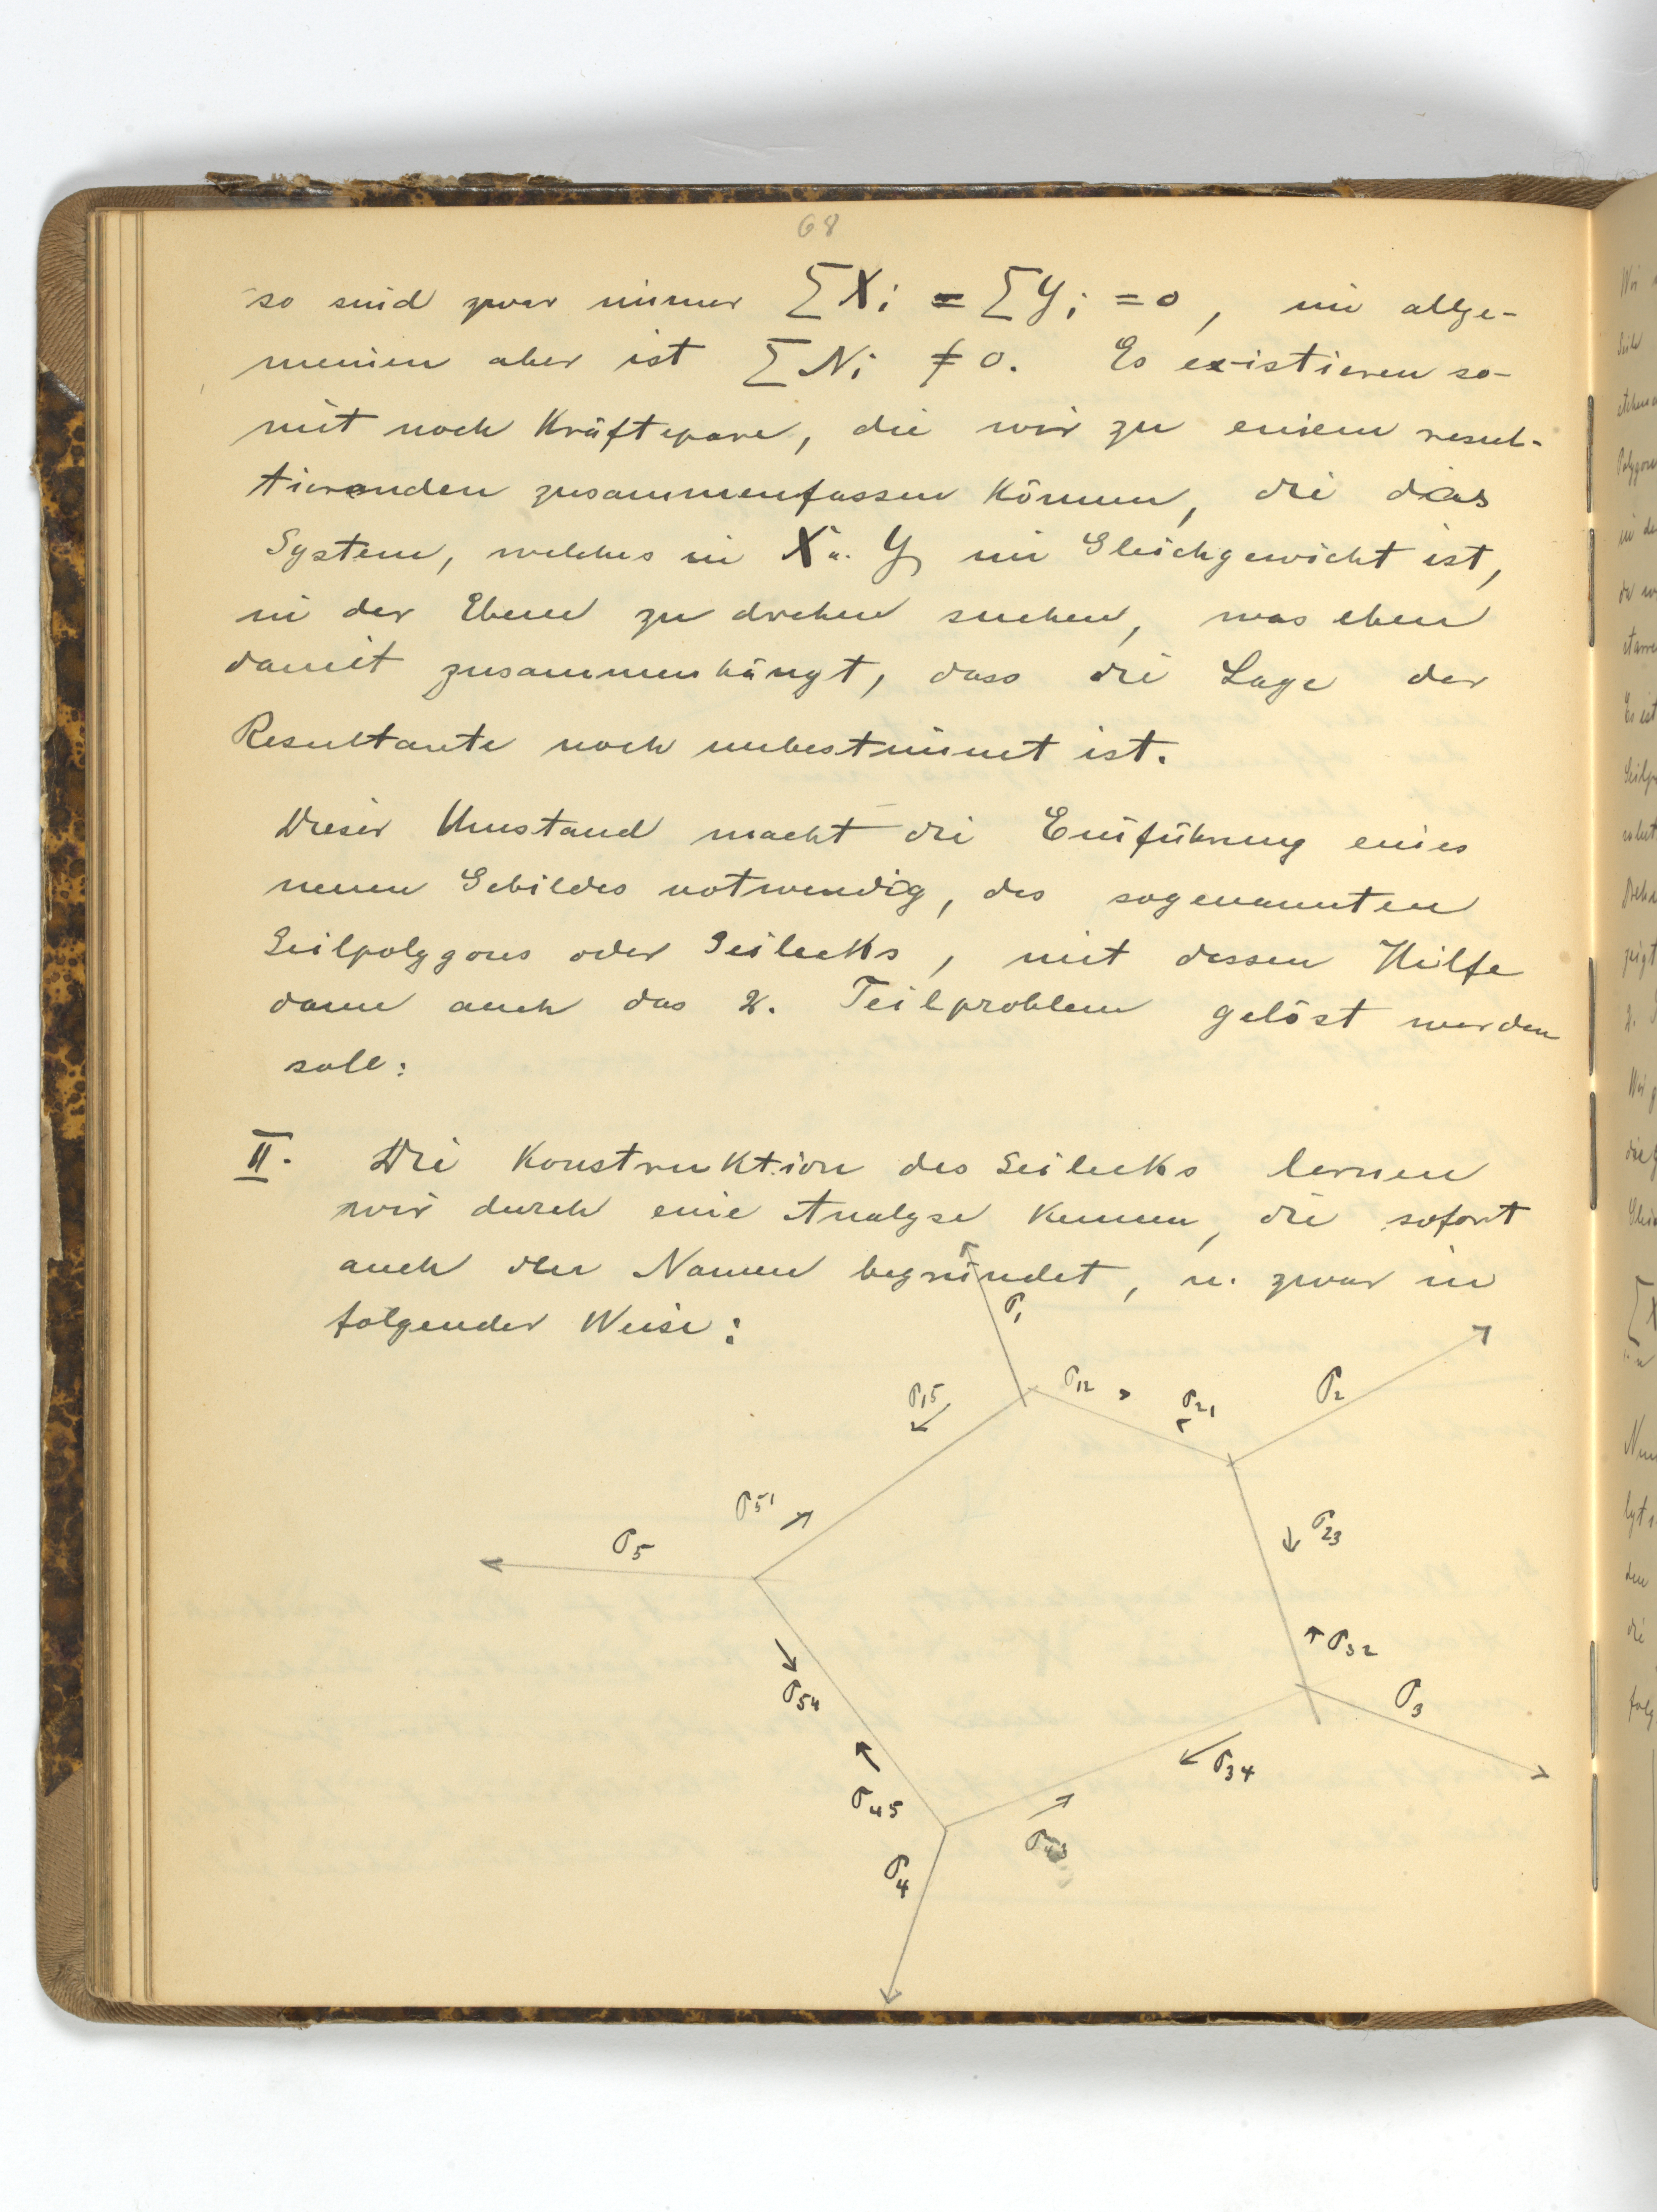 68
so sind zwar immer ∑Xi = ∑Yi = 0, im allge-
meinen aber ist ∑Ni ≠ 0. Es existieren so-
mit noch Kräftepare, die wir zu einem resul-
tierenden zusammenfassen können, die das
System, welches in X u. Y im Gleichgewicht ist,
in der Ebene zu drehen suchen, was eben
damit zusammenhängt, dass die Lage der
Resultante noch unbestimmt ist.
Dieser Umstand macht die Einführung eines
neuen Gebildes notwendig, des sogenannten
Seilpolygons oder Seilecks, mit dessen Hilfe
dann auch das 2. Teilproblem gelöst werden
soll:
II. Die Konstruktion des Seilecks lernen
wir durch eine Analyse kennen, die sofort
auch den Namen begründet, u. zwar in
folgender Weise:
σ1
σ15 σ12 σ21 σ2
σ51
σ5 σ23
σ32
σ54 σ3
σ34
σ45
σ43
σ4